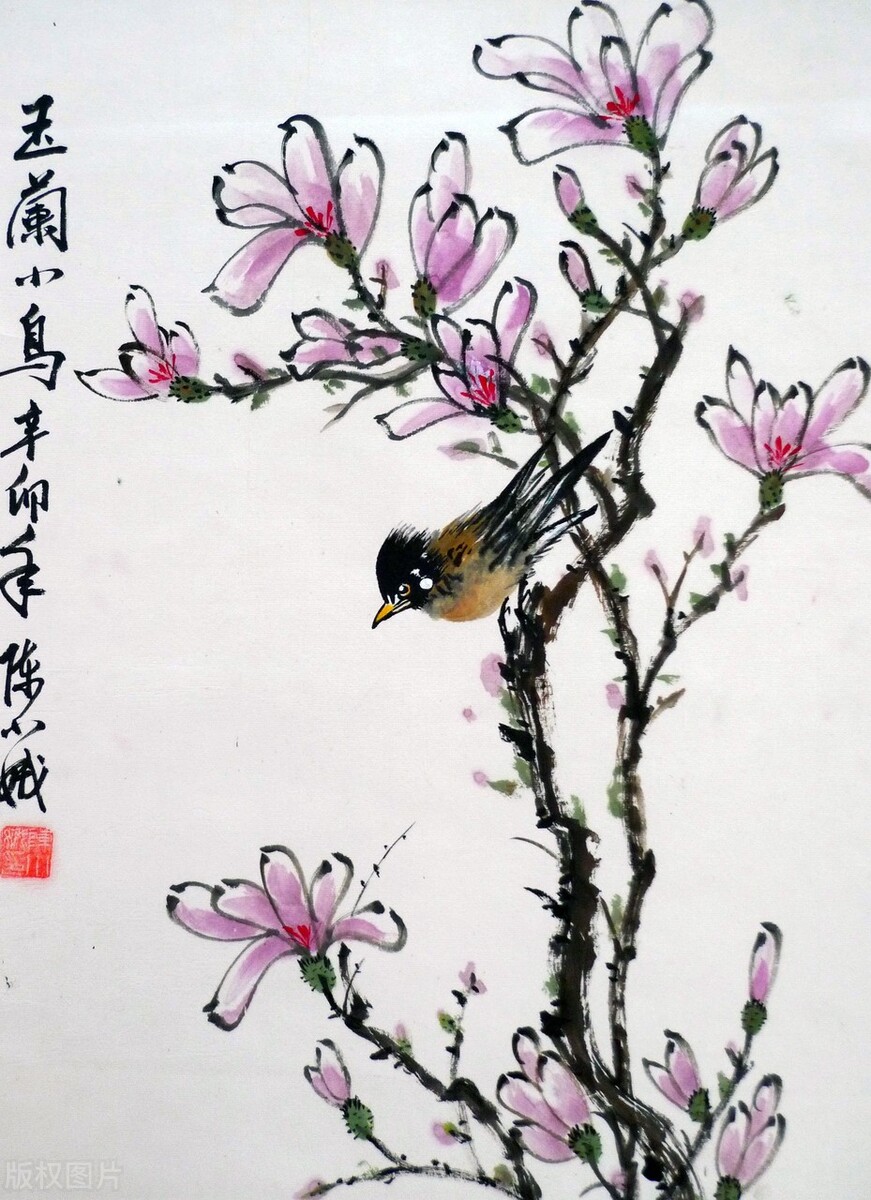 玉蘭小鸟 辛卯年 陈小
版权图片